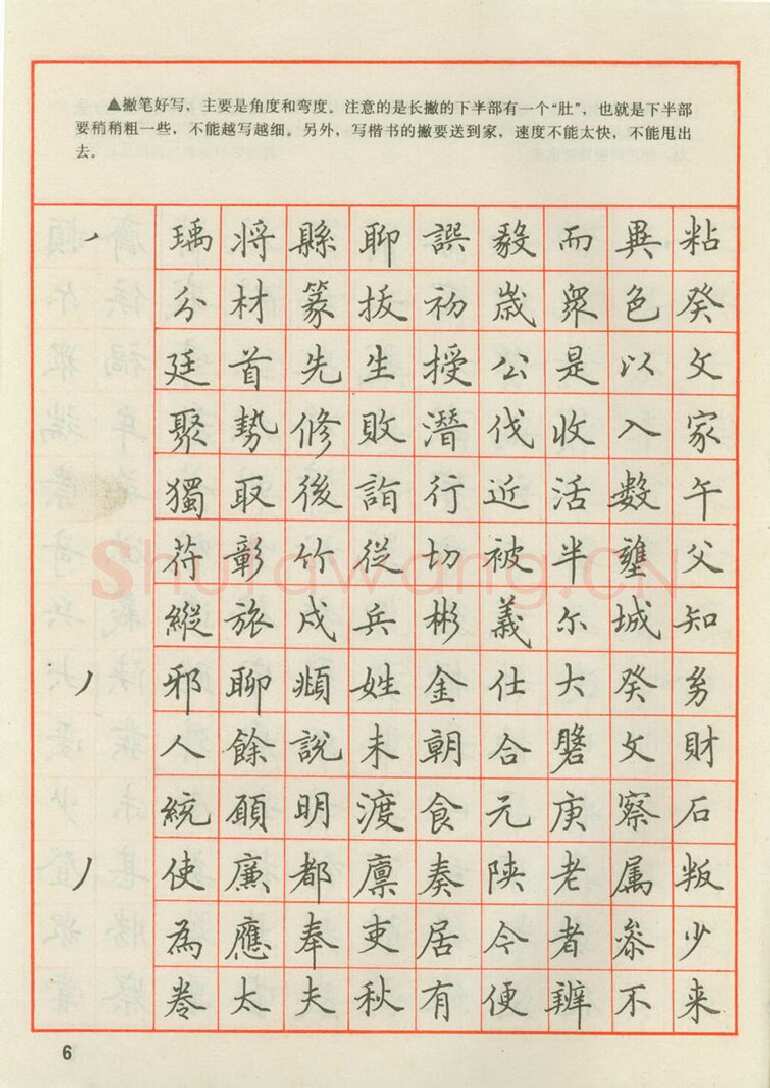 ▲撇笔好写，主要是角度和弯度。注意的是长撇的下半部有一个“肚”，也就是下半部
要稍稍粗一些，不能越写越细。另外，写楷书的撇要送到家，速度不能太快，不能甩出
去。
瑀將縣聊譔毅而異粘
分材篆拔初歲眾色癸
廷首先生授公是以文
聚勢修敗潛伐收入家
獨取後詣行近活數午
苻彰竹從切被半壅父
縱旅戍兵彬義尓城知
邪聊頫姓金仕大癸
人餘說未朝合文財
統願明渡食元庚察石
使廉都廪奏陝老属叛
為應奉吏居令者叅少
卷太夫秋有便辨不来
6